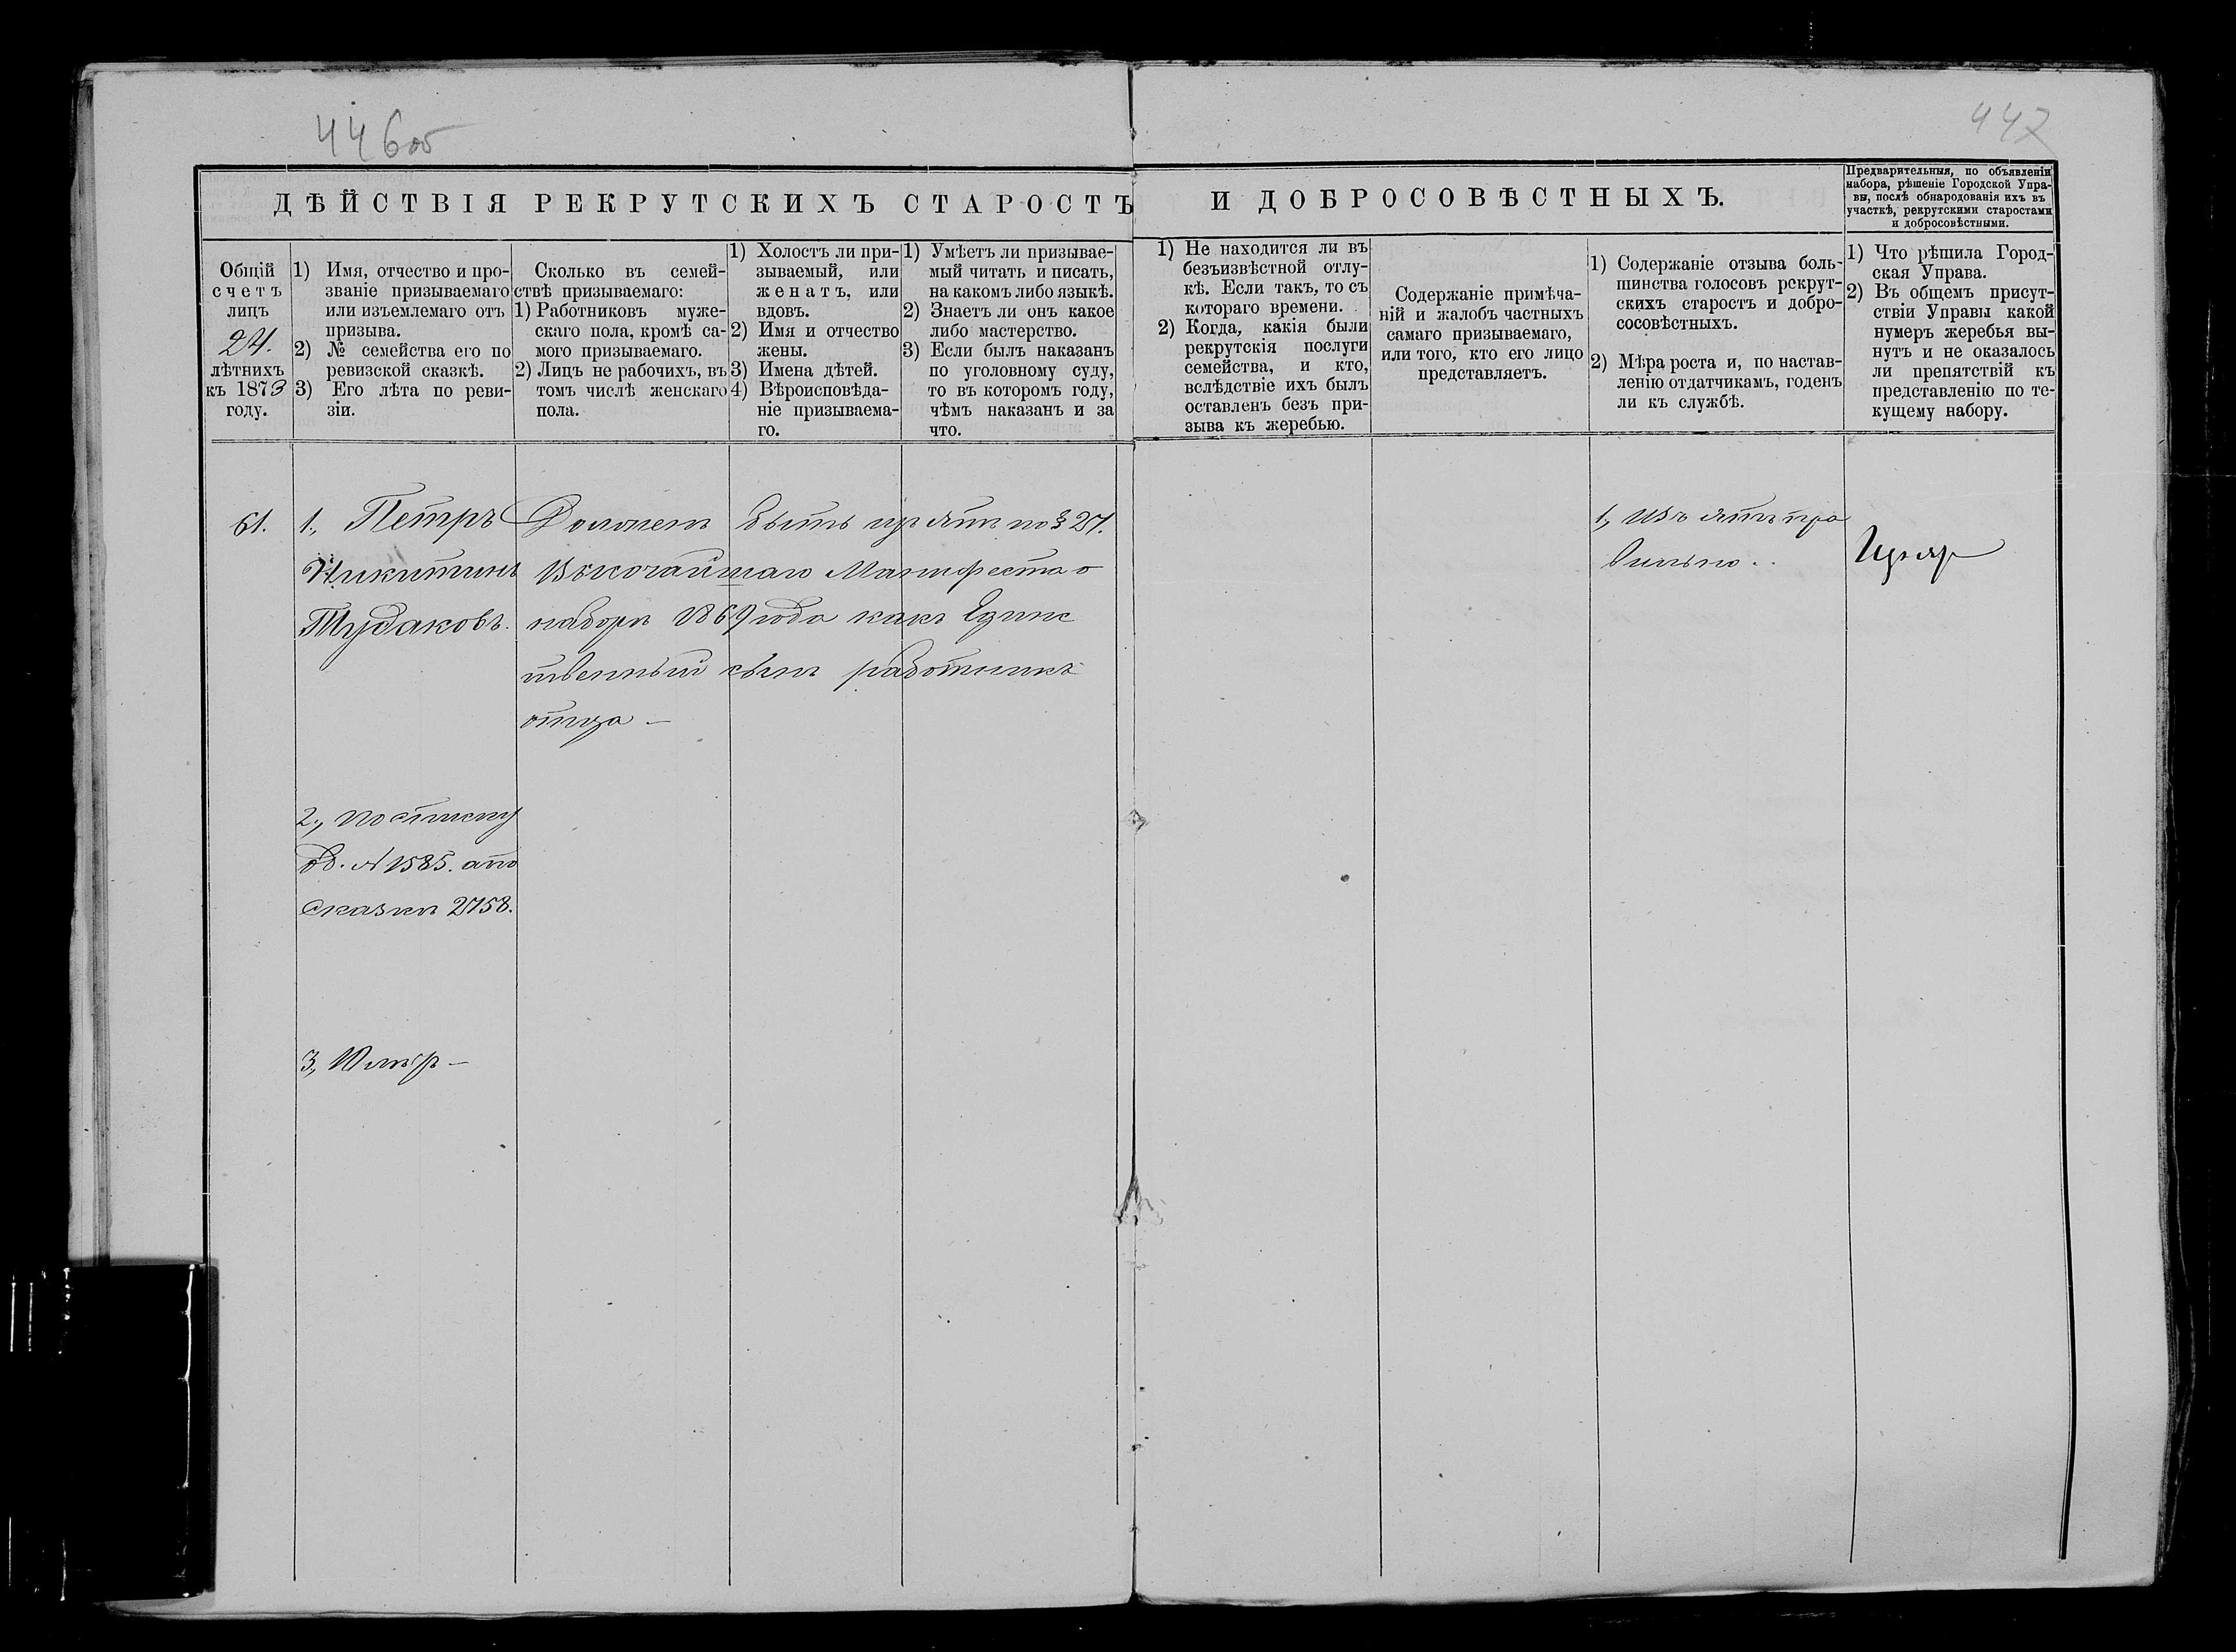 446об
447
ДѢЙСТВІЯ РЕКРУТСКИХЪ СТАРОСТЪ И ДОБРОСОВѢСТНЫХЪ.
Предварительныя, по объявленіи
набора, рѣшеніе Городской Упра-
вы, послѣ обнародованія ихъ въ
участкѣ, рекрутскими старостами
и добросовѣстными.
Общій
счетъ
лицъ
24.
лѣтнихъ
къ 1873
году.
1) Имя, отчество и про-
званіе призываемаго
или изъемлемаго отъ
призыва.
2) № семейства его по
ревизской сказкѣ.
3) Его лѣта по реви-
зіи.
Сколько въ семей-
ствѣ призываемаго:
1) Работниковъ муже-
скаго пола, кромѣ са-
мого призываемаго.
2) Лицъ не рабочихъ, въ
томъ числѣ женскаго
пола.
1) Холостъ ли при-
зываемый, или
женатъ, или
вдовъ.
2) Имя и отчество
жены.
3) Имена дѣтей.
4) Вѣроисповѣда-
ніе призываема-
го.
1) Умѣетъ ли призывае-
мый читать и писать,
на какомъ либо языкѣ.
2) Знаетъ ли онъ какое
либо мастерство.
3) Если былъ наказанъ
по уголовному суду,
то въ которомъ году,
чѣмъ наказанъ и за
что.
1) Не находится ли въ
безъизвѣстной отлу-
кѣ. Если такъ, то съ
котораго времени.
2) Когда, какія были
рекрутскія послуги
семейства, и кто,
вслѣдствіе ихъ былъ
оставленъ безъ при-
зыва къ жеребью.
Содержаніе примѣча-
ній и жалобъ частныхъ
самаго призываемаго,
или того, кто его лицо
представляетъ.
1) Содержаніе отзыва боль-
шинства голосовъ рекрут-
скихъ старостъ и добро-
сосовѣстныхъ.
2) Мѣра роста и, по настав-
ленію отдатчикамъ, годенъ
ли къ службѣ.
1) Что рѣшила Город-
ская Управа.
2) Въ общемъ присут-
ствіи Управы какой
нумеръ жеребья вы-
нутъ и не оказалось
ли препятствій къ
представленію по те-
кущему набору.
61.
1., Петръ
Никитинъ
Тудаковъ.
2., по списку
об. № 1585. а по
Сказкѣ 2758.
3,
Долженъ быть изъятъ по § 27.
Высочайшаго Манифеста о
наборѣ 1869 года какъ Единс
твенный сынъ работникъ
отца –
1., Изъятъ пра
вильно.
Изъят